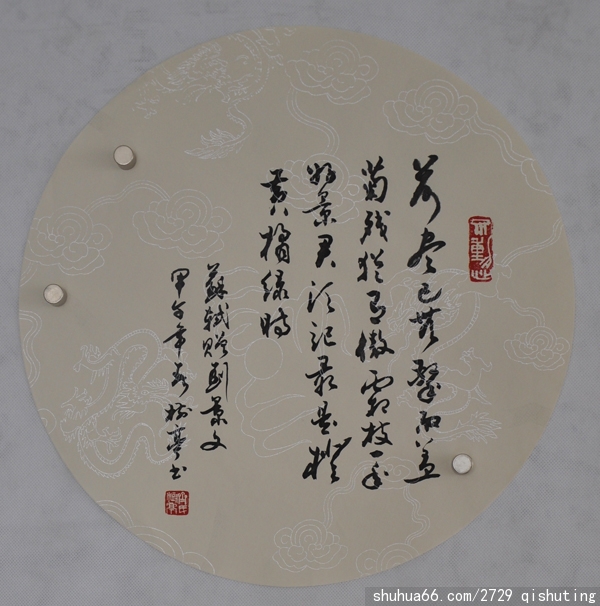 荷尽已無擎雨盖
菊殘猶有傲霜枝一年
好景君须记最是橙
黄橘绿时
蘇軾贈劉景文
甲午年春樹亭书
shuhua66.com/2729 qishuting